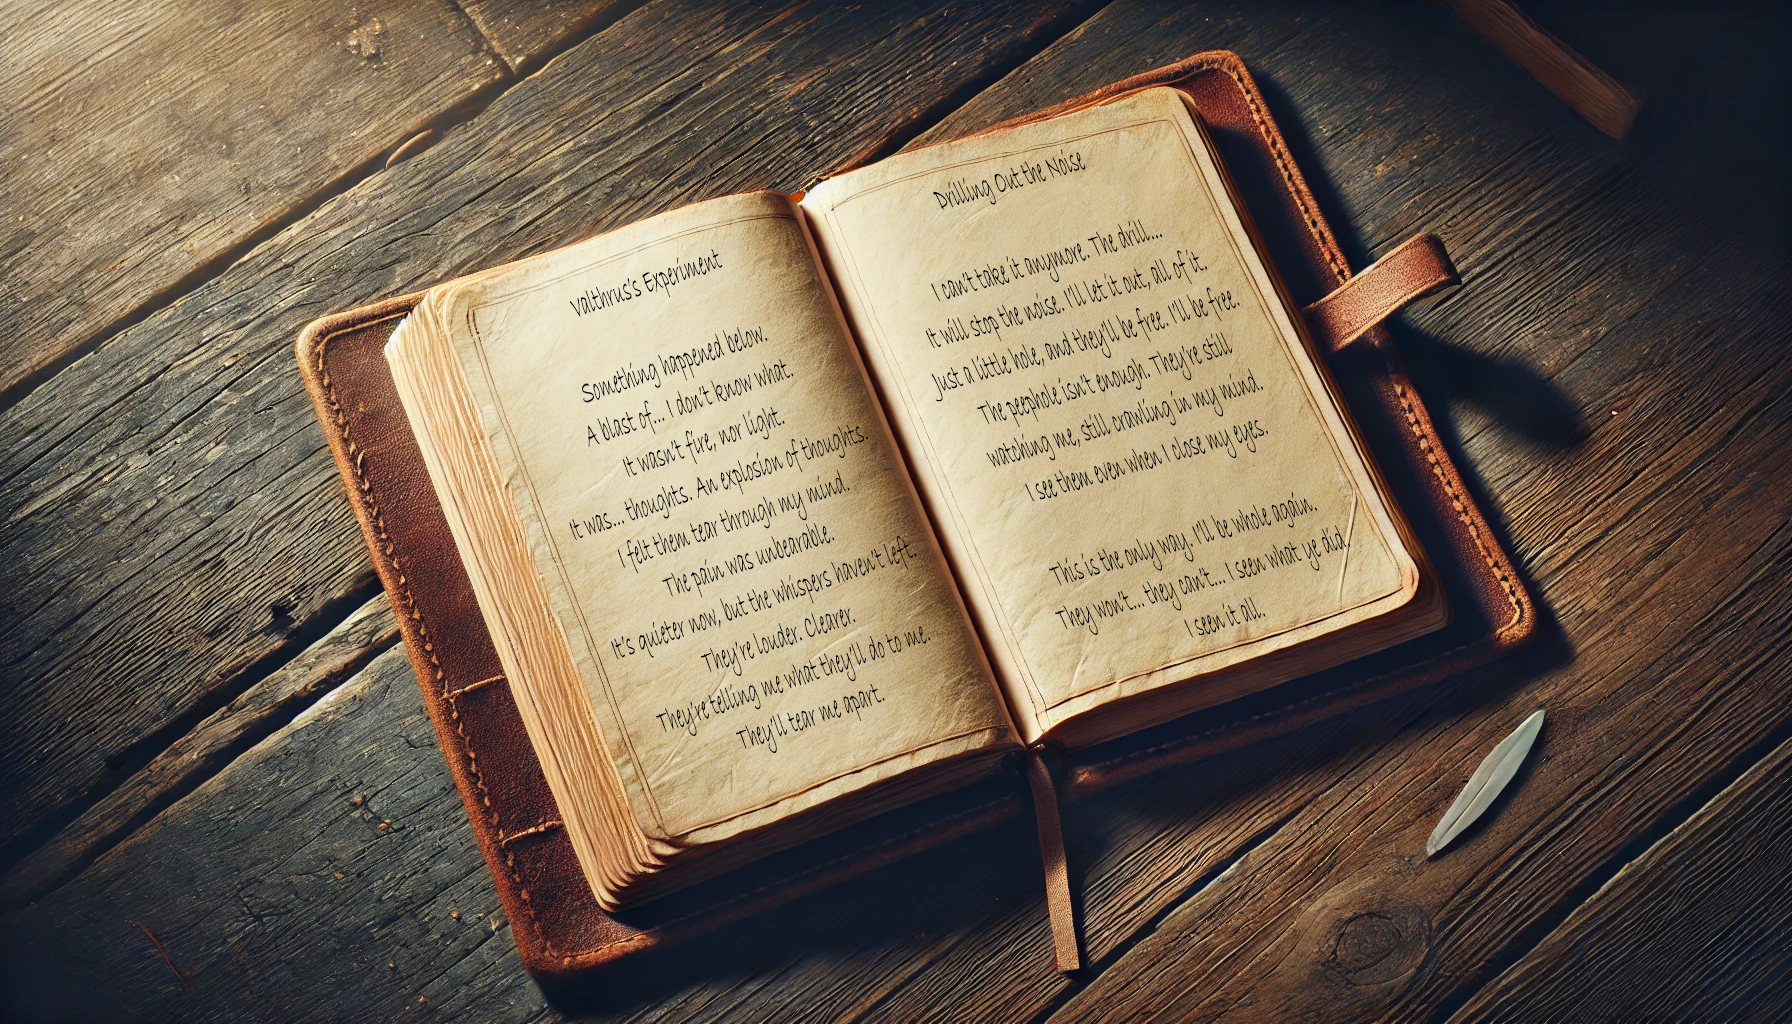 Valthrus's Experiment
Something happened below.
A blast of... I don't know what.
It wasn't fire, nor light.
It was... thoughts. An explosion of thoughts.
I felt them tear through my mind.
The pain was unbearable.
It's quieter now, but the whispers haven't left.
They're louder. Clearer.
They're telling me what they'll do to me.
They'll tear me apart.
Drilling Out the Noise
I can't take it anymore. The drill...
It will stop the noise. I'll let it out, all of it.
Just a little hole, and they'll be free. I'll be free.
The peephole isn't enough. They're still
watching me, still crawling in my mind.
I see them even when I close my eyes.
This is the only way. I'll be whole again.
They won't... they can't... I seen what ye did.
I seen it all.